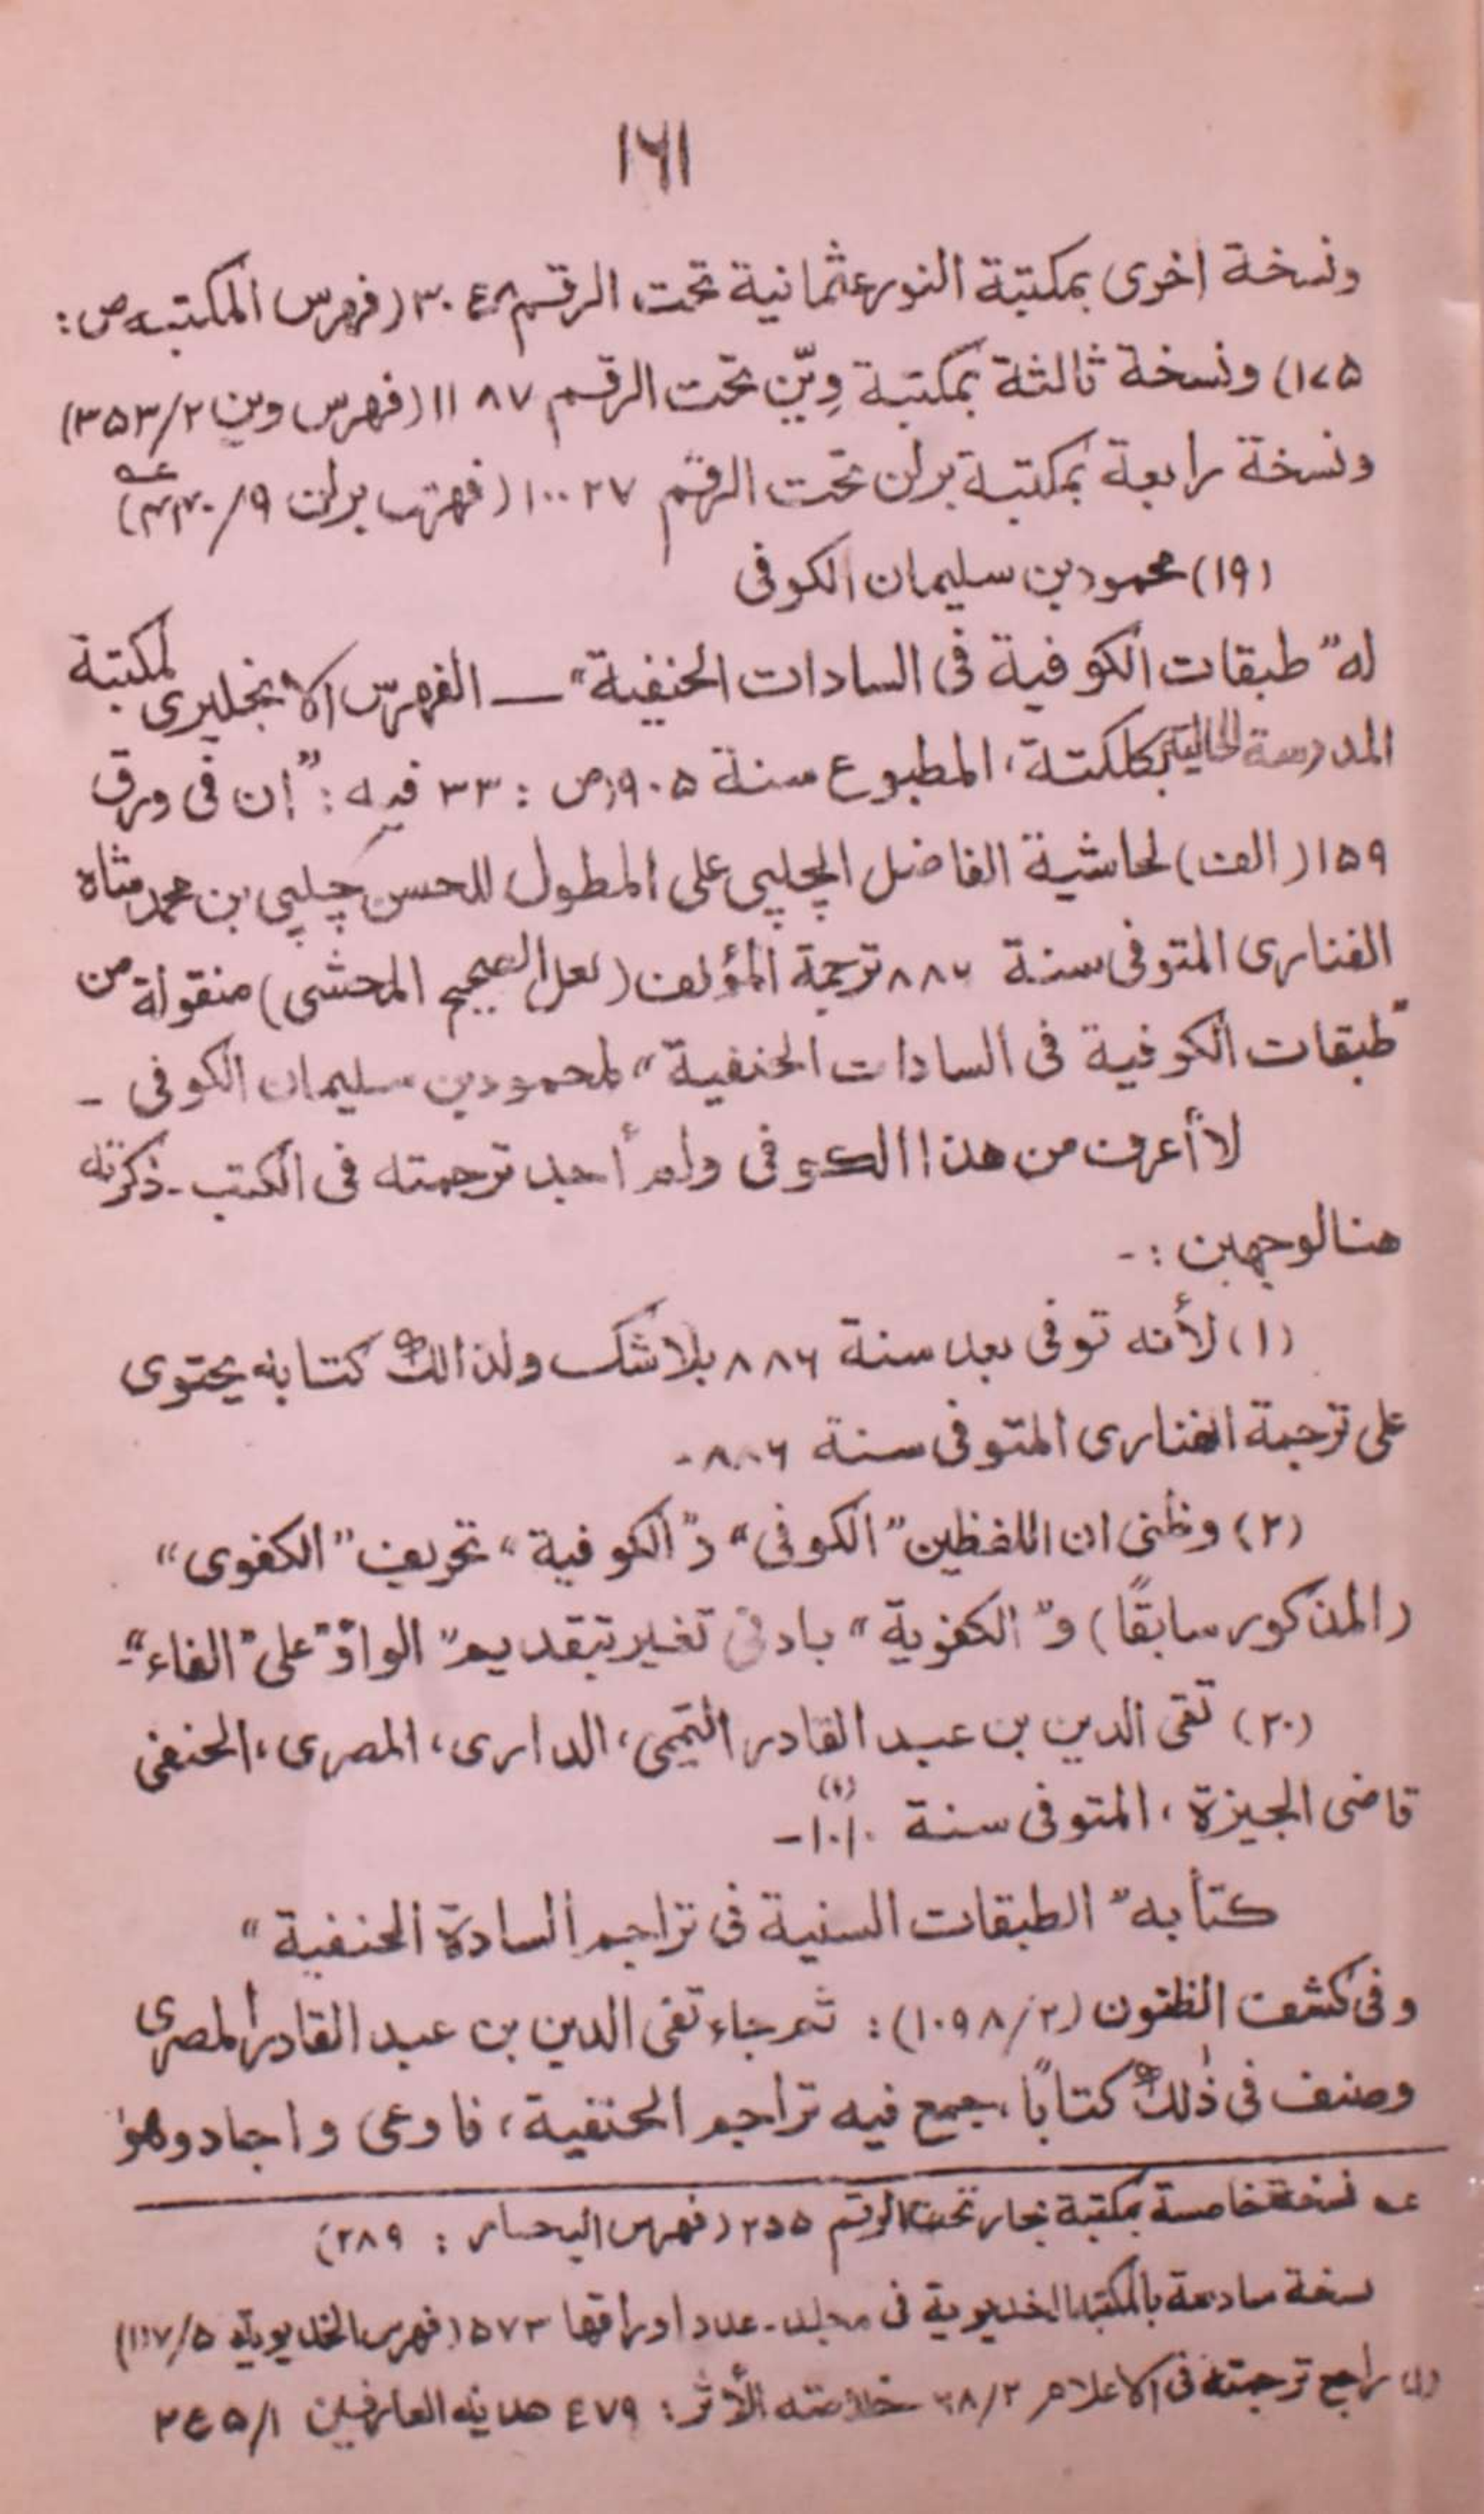 ۱۶۱
ونسخة اخرى بمكتبة النور عثمانية تحت الرقم ۳۰٤۸ (فهرس المكتبه ص:
۱۷۵) ونسخة ثالثة بمكتبة وِيّن تحت الرقم ۱۱۸۷ (فهرس وين ۳۵۳/۲)
ونسخة رابعة بمكتبة برلن تحت الرقم ۱۰۰۲۷ (فهرس برلن ۹/
(۱۹) محمود بن سليمان الكوفى
له "طبقات الكوفية فى السادات الحنفية" ـــ الفهرس الانجليرى لمكتبة
المدرسة العالية بكلكتة، المطبوع سنة ۱۹۰۵ ص: ۳۳ فيه: "ان فى ورق
۱۵۹ (الف) لحاشية الفاضل الچلپي على المطول للحسن چلپي بن محمد شاه
الفنارى المتوفى سنة ۸۸۶ ترجمة المؤلف (لعل الصحيح المحشى) منقولة من
"طبقات الكوفية فى السادات الحنفية" لمحمود بن سليمان الكوفى -
لا أعرف من هذا الكوفى ولم أجد ترجمته فى الكتب - ذكرته
هنا لوجهين :-
(۱) لأنه توفى بعد سنة ۸۸۶ بلاشك ولذالك كتابه يحتوى
على ترجمة الفنارى المتوفى سنة ۸۸۶ -
(۲) وظنى ان اللفظين "الكوفى" و"الكوفية" تحريف "الكفوى"
(المذكور سابقًا) و"الكفوية" بادنى تغير بتقديم "الواو" على "الفاء" -
(۲۰) تقى الدين بن عبد القادر التميمى، الدارى، المصرى، الحنفى
قاضى الجيزة، المتوفى سنة ۱۰۱۰ (۱) -
كتابه "الطبقات السنية فى تراجم السادة الحنفية"
وفى كشف الظنون (۱۰۹۸/۲): ثم جاء تقى الدين بن عبد القادر المصرى
وصنف فى ذٰلك كتابًا، جمع فيه تراجم الحنفية، فاوعى واجاد وهو
عه نسخة خامسة بمكتبة تحت الرقم ۲۵۵ (فهرس : ۲۸۹)
نسخة سادسة بالمكتبة الخديوية فى مجلد - عدد اوراقها ۵۷۳ (فهرس الخديوية ۵/
(۱) راجع ترجمته فى الاعلام ۶۸/۲ خلاصة الأثر: ٤۷۹ هدية العارفين ۲٤۵/۱